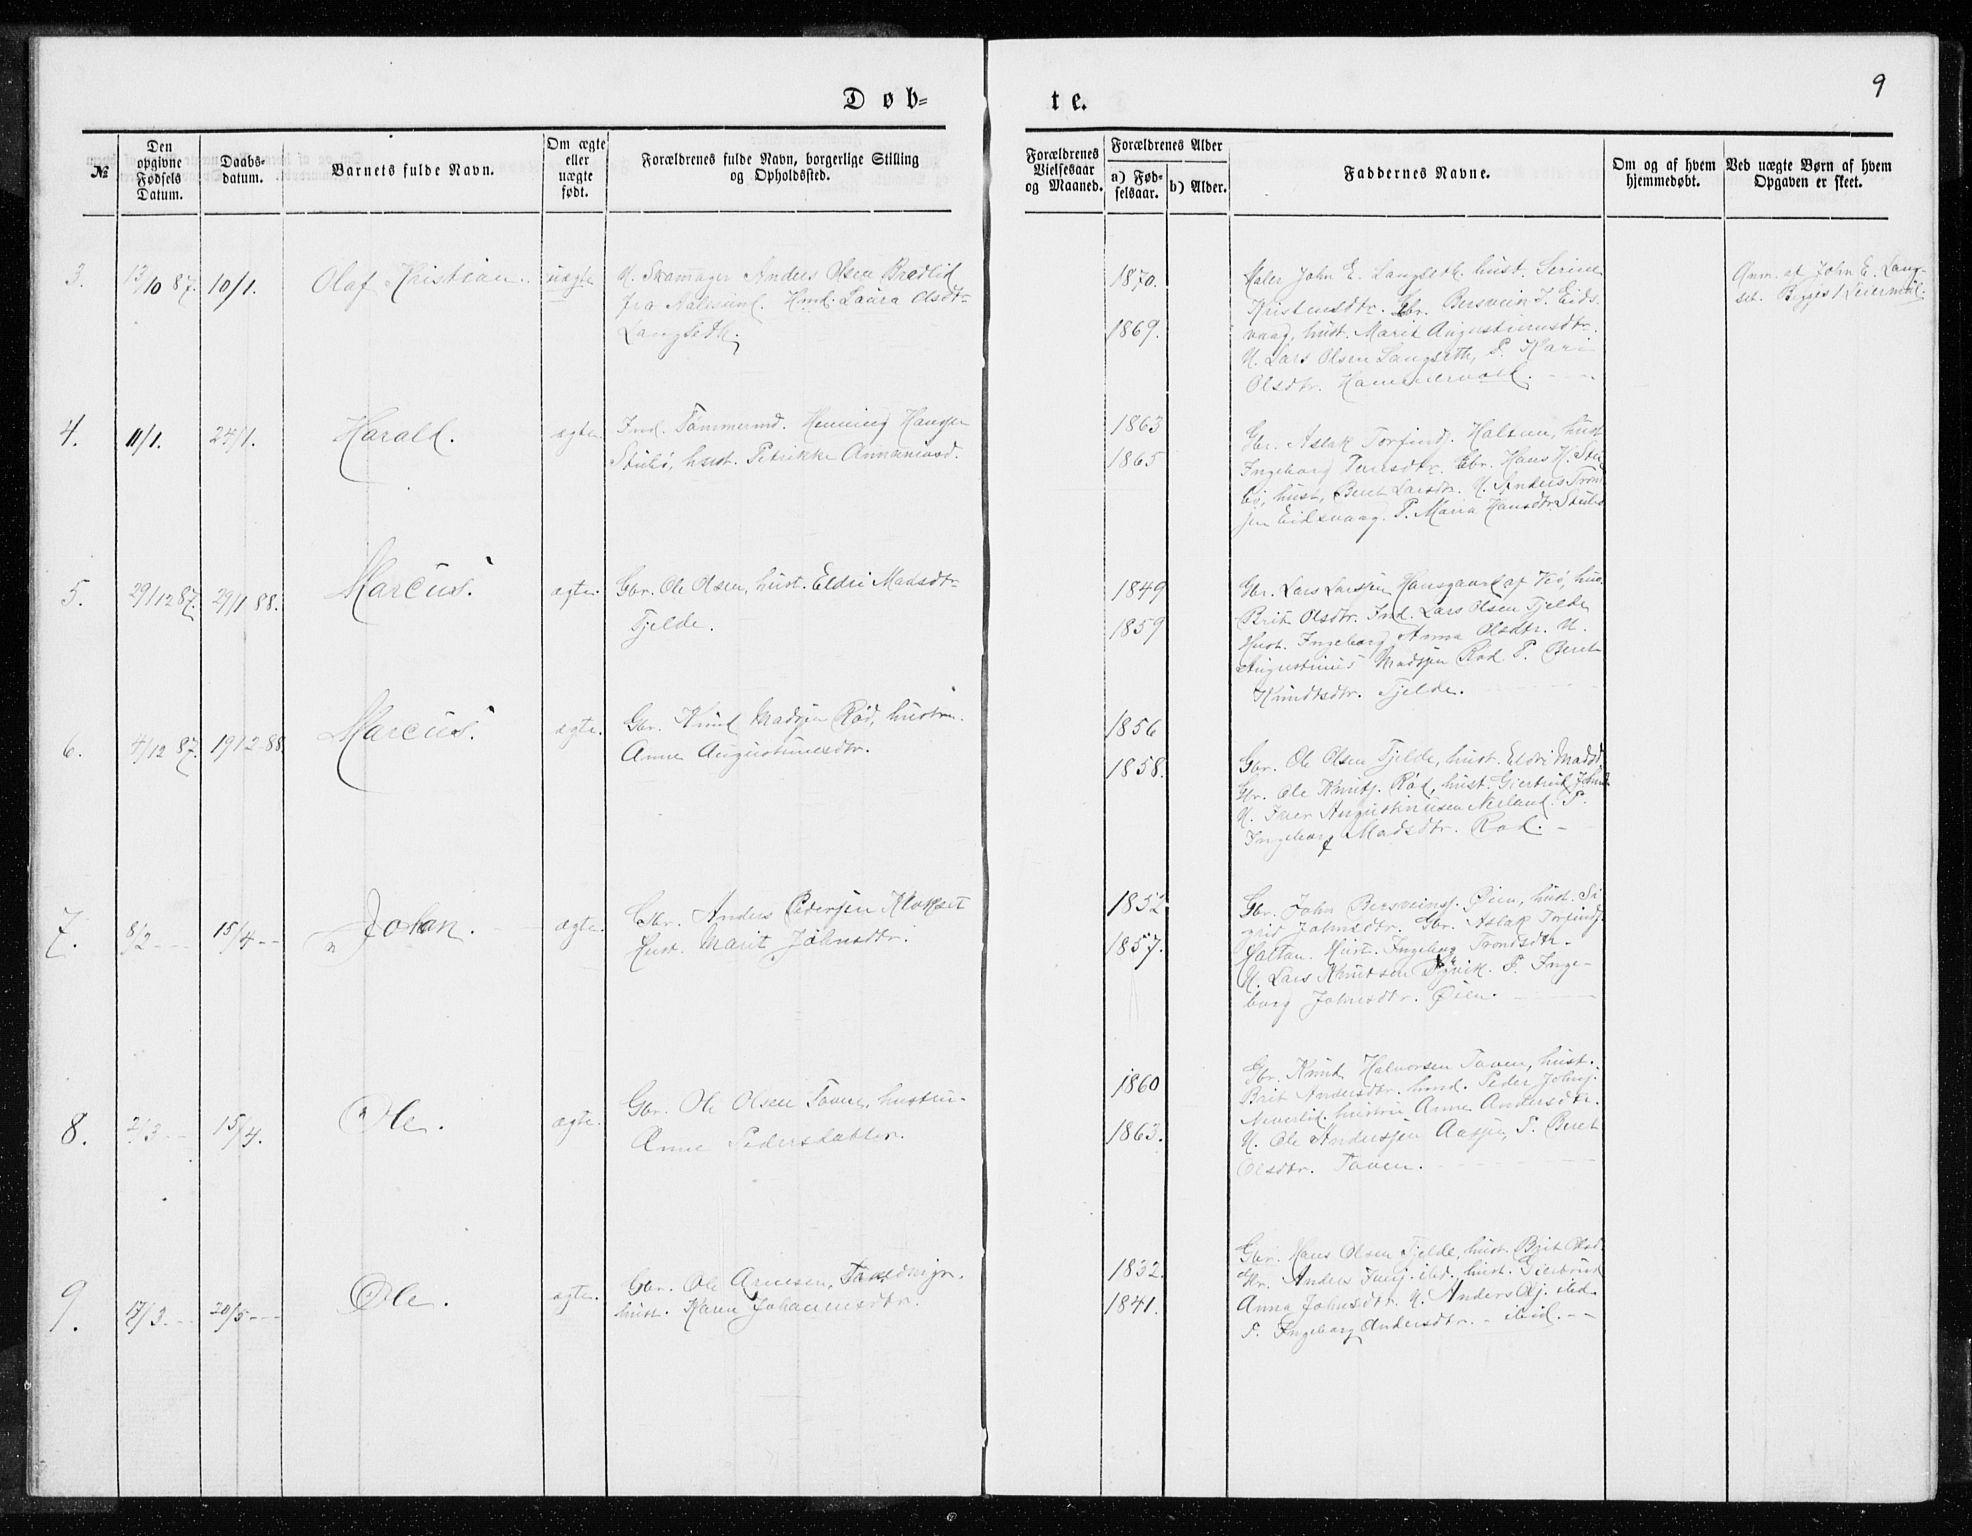 9
Døb-
te.
№
Den opgivne Fødsels Datum.
Daabs-datum.
Barnets fulde Navn.
Om ægte eller uægte født.
Forældrenes fulde Navn, borgerlige Stilling og Opholdssted.
Forældrenes Vielsesaar og Maaned.
Forældrenes Alder
a) Fødselsaar.
b) Alder.
Faddernes Navne.
Om og af hvem hjemmedøbt.
Ved uægte Børn af hvem Opgaven er skeet.
3.
13/10 87.
10/1.
Olaf Kristian.
uægte
U. Skomager Anders Olsen Bredlid
fra Aalesund. Hmd. Laura Olsdtr
Langseth.
1870.
1869.
Maler John E. Langseth. hust. Serine
Kristensdtr. Gbr. Bersvein J. Eids-
vaag, hust. Marit Augustinusdtr.
U. Lars Olsen Langseth, P. Kari
Olsdtr. Hammervold.
Anm. af John E. Lang-
set. Begges 1 Leiermål.
4.
11/1.
24/1.
Harald.
ægte.
Ind. Tømmermd. Henning Hansen
Stubø, hust. Petrikke Annaniasd.
1863
1865
Gbr. Aslak Torfindj. Haltan, hust
Ingeborg Gbr. Hans H. Stu
bø, hust, Beret Larsdtr. U. Anders Tron
sen Eidsvaag. P. Maria Hansdtr Stubø
5.
29/12 87.
29/1 88.
Marcus.
ægte.
Gbr. Ole Olsen, hust. Eldri Madsdtr
Tjelde.
1849
1859
Gbr. Lars Larssen Hansgaard af Veø, hus.
Brit Olsdtr. Ind. Lars Olsen Tjelde
Hust. Ingeborg Anna Olsdtr. U.
Augustinus Madssen Rød. P. Beret
Knudtsdtr. Tjelde.
6.
4/12 87.
19/2-88.
Marcus.
ægte.
Gbr. Knud Madssen Rød, hustru
Anne Augustinusdtr.
1856
1858.
Gbr. Ole Olsen Tjelde, hust. Eldri Madsd.
Gbr. Ole Knutsj. Rød, hust. Gjertrud
U. Iver Augustinusen Nerland. P.
Ingeborg Madsdtr. Rød.
7.
8/2
15/4
Johan.
ægte.
Gbr. Anders Pedersen Klokset
Hust. Marit Johnsdtr.
1852
1857.
Gbr. John Bersveinsj. Øien, hust. Si
grid Johnsdtr. Gbr. Aslak Torfindj.
Haltan. Hust. Ingeborg Trondsdtr.
U. Lars Knudsen P. Inge-
borg Johnsdtr. Øien.
8.
2/3
15/4.
Ole.
ægte.
Gbr. Ole Olsen Toven, hustru
Anne Pedersdatter.
1860
1863.
Gbr. Knut Halvorsen Toven, hust.
Brit Andersdtr. hmd. Peder Johnsj.
Neverlid, hustru Anne Andersdtr.
U. Ole Anderssen Aasen, P. Beret
Olsdtr. Toven.
9.
17/3
20/5
Ole.
ægte.
Gbr. Ole Arnesen,
hust. Karen Johannesdtr.
1832.
1841.
Gbr. Hans Olsen Tjelde, hust. Brit Olsd
Gbr. Anders ibd. hust. Gjertrud
Anna Johnsdtr. U. Anders Olsj. ibid.
P. Ingeborg Andersdtr. - ibid.